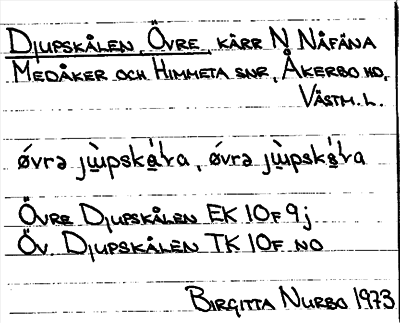 DJUPSKÅLEN, ÖVRE, KÄRR N NÅFÄNA
MEDÅKER OCH HIMMETA SNR, ÅKERBO HD,
VÄSTM. L.
ÖVRE DJUPSKÅLEN EK 10F 9j
ÖV. DJUPSKÅLEN TK 10F NO
BIRGITTA NURBO 1973